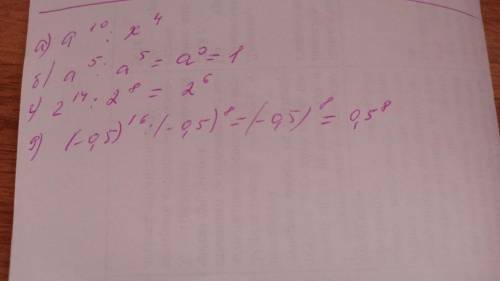 а) a¹⁰ : x⁴
б) a⁵ : a⁵ = a⁰ = 1
4) 2¹⁴ : 2⁸ = 2⁶
g) (-0,5)¹⁶ : (-0,5)⁸ = (-0,5)⁸ = 0,5⁸